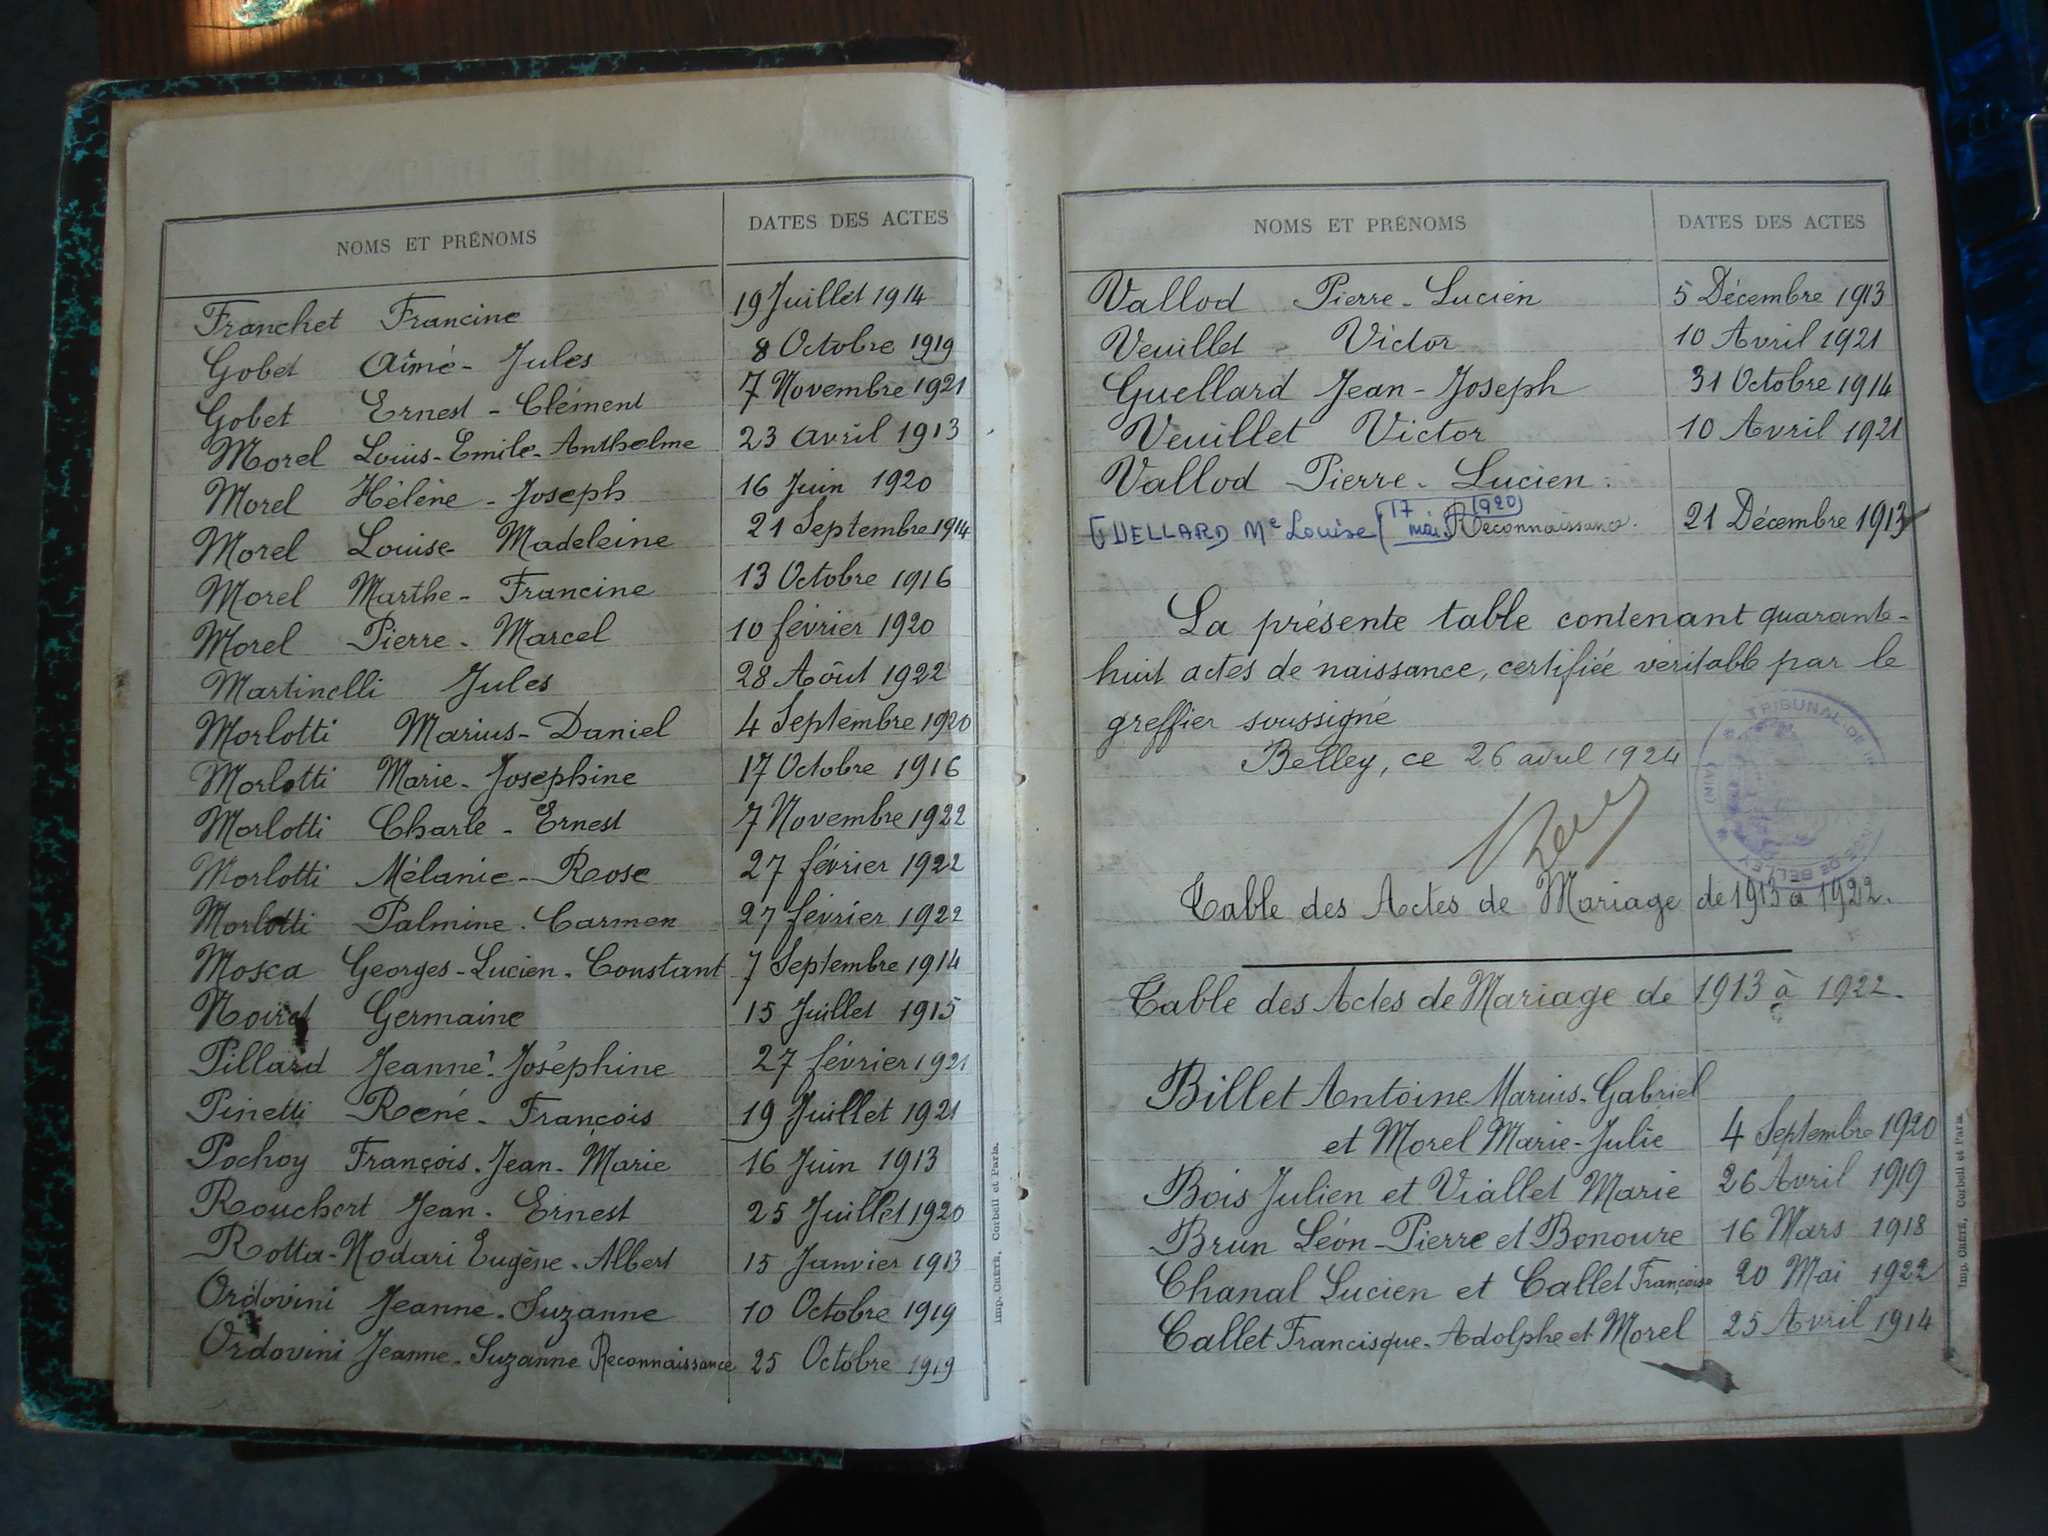 NOMS ET PRÉNOMS DATES DES ACTES
Franchet Francine 19 Juillet 1914
Gobet Aimé - Jules 8 Octobre 1919
Gobet Ernest - Clément 7 Novembre 1921
Morel Louis - Emile - Anthelme 23 Avril 1913
Morel Hélène - Joseph 16 Juin 1920
Morel Louise Madeleine 21 Septembre 1914
Morel Marthe - Francine 13 Octobre 1916
Morel Pierre - Marcel 10 février 1920
Martinelli Jules 28 Août 1922
Morlotti Marius - Daniel 4 Septembre 1920
Morlotti Marie - Josephine 17 Octobre 1916
Morlotti Charle - Ernest 7 Novembre 1922
Morlotti Mélanie - Rose 27 février 1922
Morlotti Palmine - Carmen 27 février 1922
Mosca Georges - Lucien - Constant 7 Septembre 1914
Noiret Germaine 15 Juillet 1915
Pillard Jeanne - Joséphine 27 février 1921
Pinetti René - François 19 Juillet 1921
Pochoy François - Jean - Marie 16 Juin 1913
Rouchert Jean - Ernest 25 Juillet 1920
Rotta - Nodari Eugène - Albert 15 Janvier 1913
Ordovini Jeanne - Suzanne 10 Octobre 1919
Ordovini Jeanne - Suzanne Reconnaissance 25 Octobre 1919
Imp. CRÉTÉ, Corbeil et Paris.
NOMS ET PRÉNOMS DATES DES ACTES
Vallod Pierre - Lucien 5 Décembre 1913
Veuillet Victor 10 Avril 1921
Guellard Jean - Joseph 31 Octobre 1914
Veuillet Victor 10 Avril 1921
Vallod Pierre - Lucien
GUELLARD Me Louise (17 mai 1920) Reconnaissance. 21 Décembre 1913
La présente table contenant quarante-
huit actes de naissance, certifiée véritable par le
greffier soussigné
Belley, ce 26 avril 1924
TRIBUNAL DE BELLEY (AIN)
Table des Actes de Mariage de 1913 à 1922.
Table des Actes de Mariage de 1913 à 1922.
Billet Antoine Marius - Gabriel
et Morel Marie - Julie 4 Septembre 1920
Bois Julien et Viallet Marie 26 Avril 1919
Brun Léon - Pierre et Bonoure 16 Mars 1918
Chanal Lucien et Callet Françoise 20 Mai 1922
Callet Francisque - Adolphe et Morel 25 Avril 1914
Imp. CRÉTÉ, Corbeil et Paris.